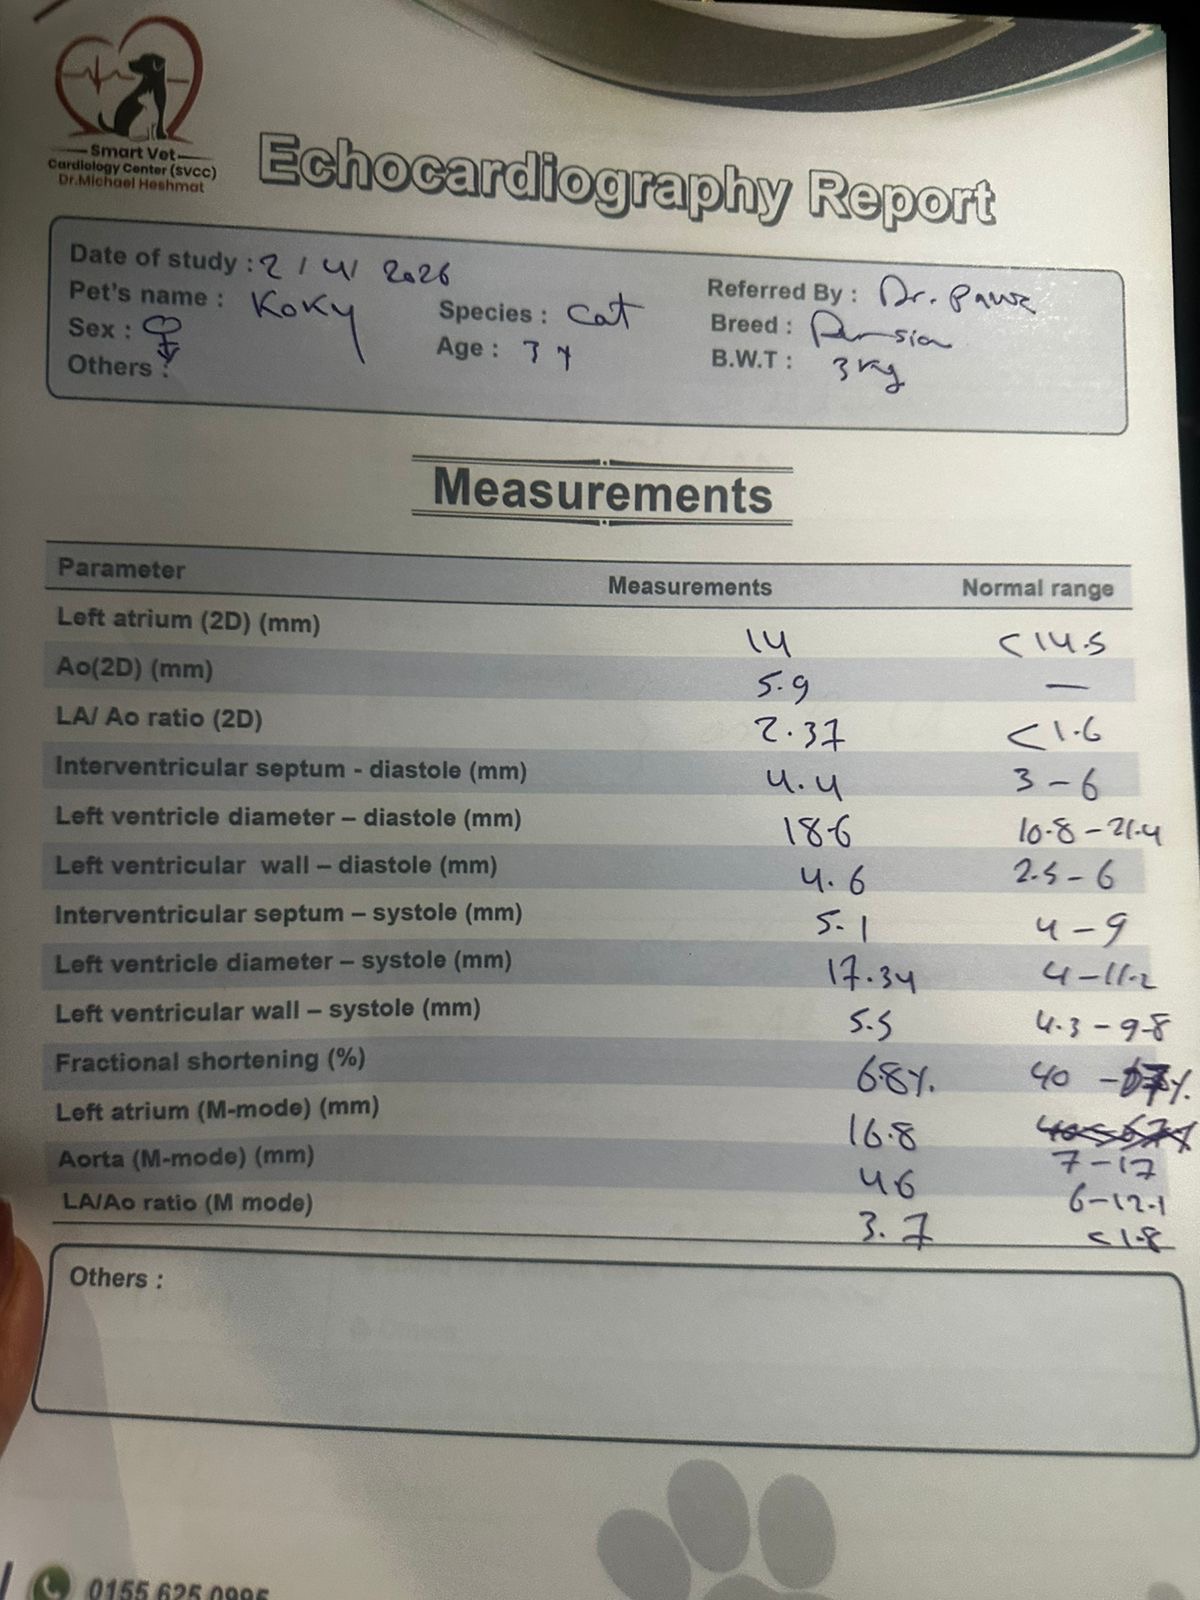 Smart Vet
Cardiology Center (SVCC)
Dr.Michael Heshmat
Echocardiography Report
Date of study : 2 / 4 / 2026
Pet's name : Koky
Species : Cat
Referred By : Dr. Pawz
Sex : ♀
Age : 3 y
Breed : Persian
Others :
B.W.T : 3 kg
Measurements
Parameter Measurements Normal range
Left atrium (2D) (mm) 14 <14.5
Ao(2D) (mm) 5.9 —
LA/ Ao ratio (2D) 2.37 <1.6
Interventricular septum - diastole (mm) 4.4 3 - 6
Left ventricle diameter – diastole (mm) 18.6 10.8 - 21.4
Left ventricular wall – diastole (mm) 4.6 2.5 - 6
Interventricular septum – systole (mm) 5.1 4 - 9
Left ventricle diameter – systole (mm) 17.34 4 - 11.2
Left ventricular wall – systole (mm) 5.5 4.3 - 9.8
Fractional shortening (%) 6.8% 40 - %
Left atrium (M-mode) (mm) 16.8 7 - 17
Aorta (M-mode) (mm) 4.6 6 - 12.1
LA/Ao ratio (M mode) 3.7 <1.8
Others :
0155 625 0995